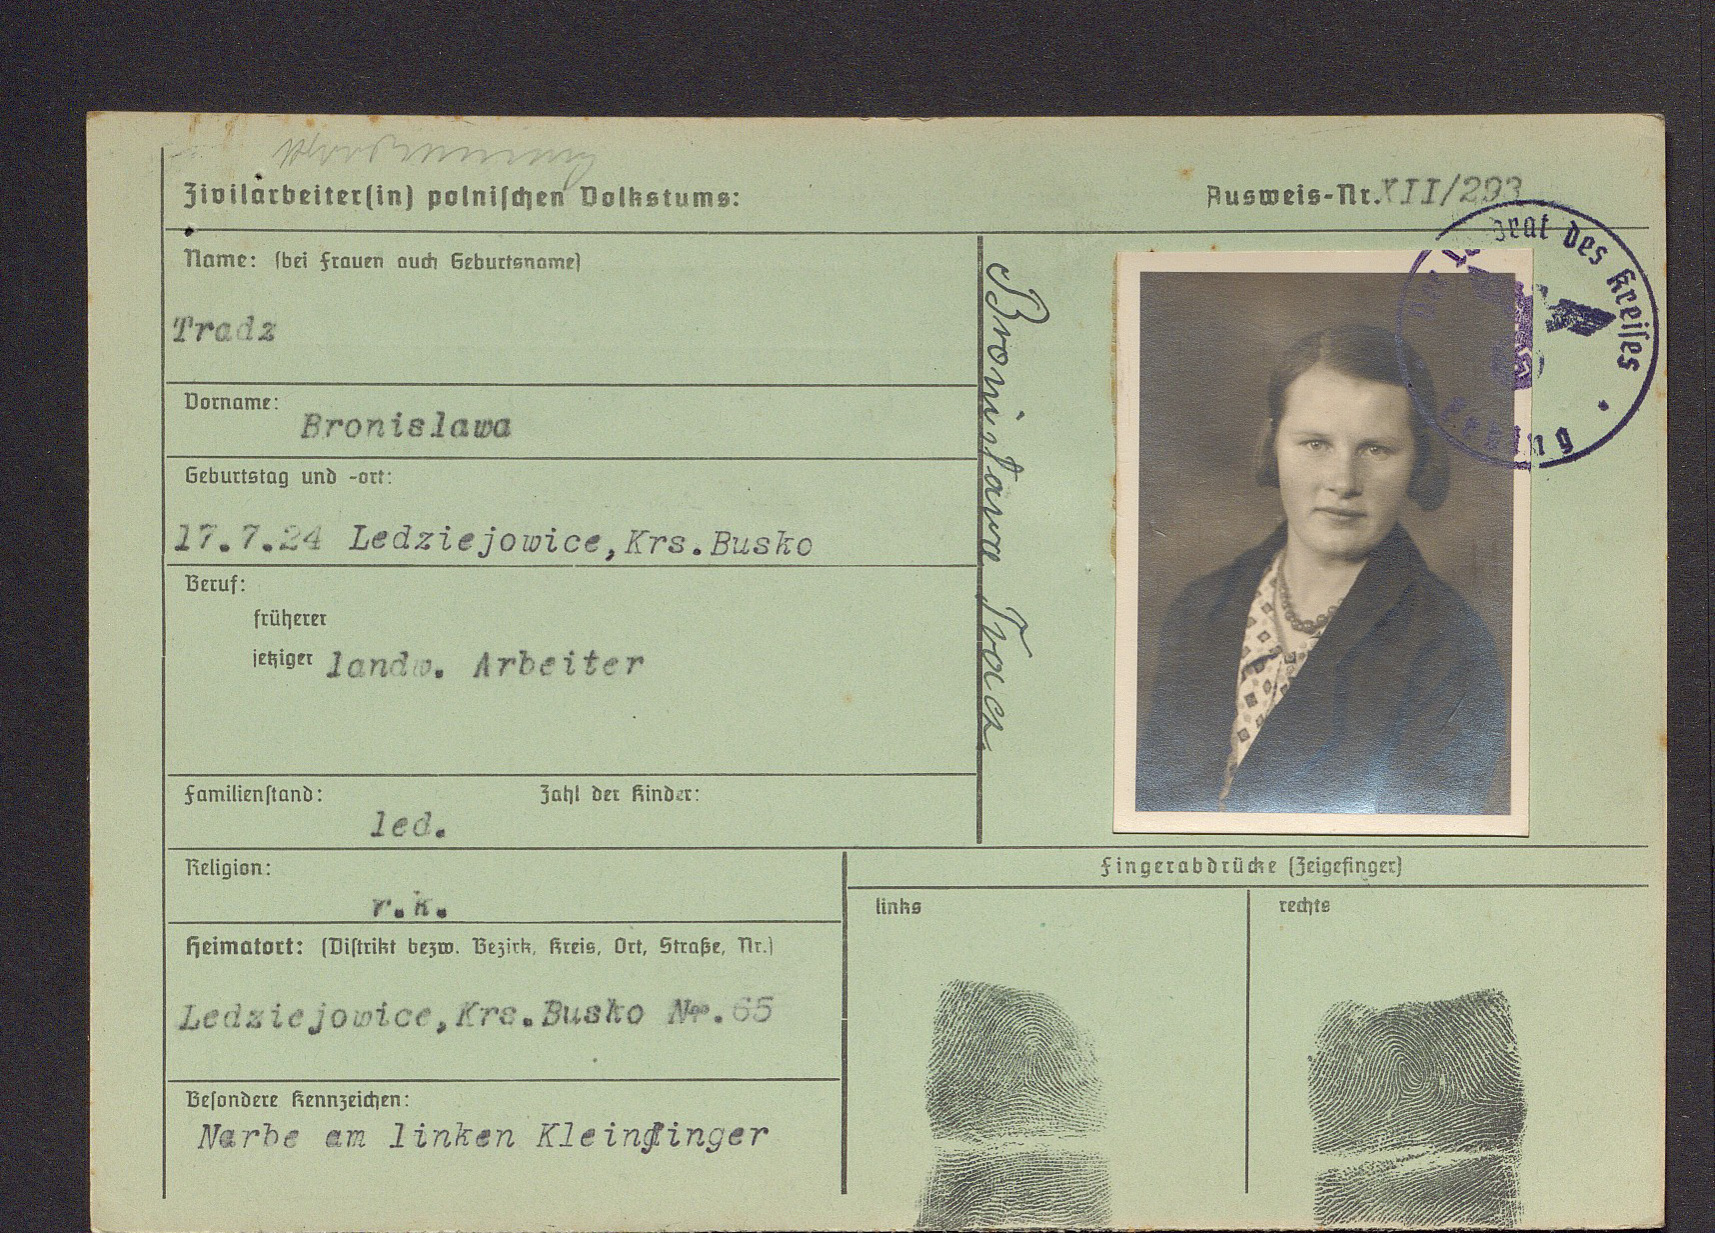 Zivilarbeiter(in) polnischen Volkstums:
Ausweis-Nr. XII/293
Name: (bei Frauen auch Geburtsname)
Tradz
Vorname: Bronislawa
Geburtstag und -ort:
17.7.24 Ledziejowice,Krs.Busko
Beruf:
früherer
jetziger landw. Arbeiter
Familienstand: Zahl der Kinder:
led.
Religion:
r.k.
Heimatort: (Distrikt bezw. Bezirk, Kreis, Ort, Straße, Nr.)
Ledziejowice,Krs.Busko Nr.65
Besondere Kennzeichen:
Narbe am linken Kleinfinger
Bronisława Tracz
des Kreises
Fingerabdrücke (Zeigefinger)
links
rechts